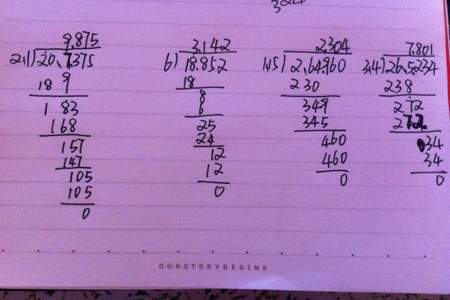 9.875
2.1)20.7375
18 9
1 83
1 68
157
147
105
105
0
3.142
6)18.852
18
8
6
25
24
12
12
0
2.304
1.15)2.64960
2 30
349
345
460
460
0
7.801
3.4)26.5234
238
272
272
34
34
0
OURSTORYBEGINS